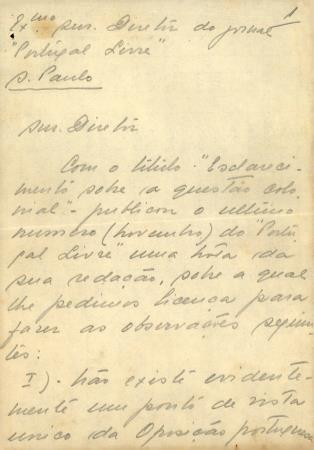 1
Ex.mo snr. Diretor do jornal
"Portugal Livre"
S. Paulo
snr. Diretor
Com o título "Esclareci-
mento sobre a questão colo-
nial" - publicou o ultimo
numero (novembro) do "Portu-
gal Livre" uma nota da
sua redação, sobre a qual
lhe pedimos licença para
fazer as observações seguin-
tes:
I) - Não existe evidente-
mente um ponto de vista
unico da Oposição portuguesa